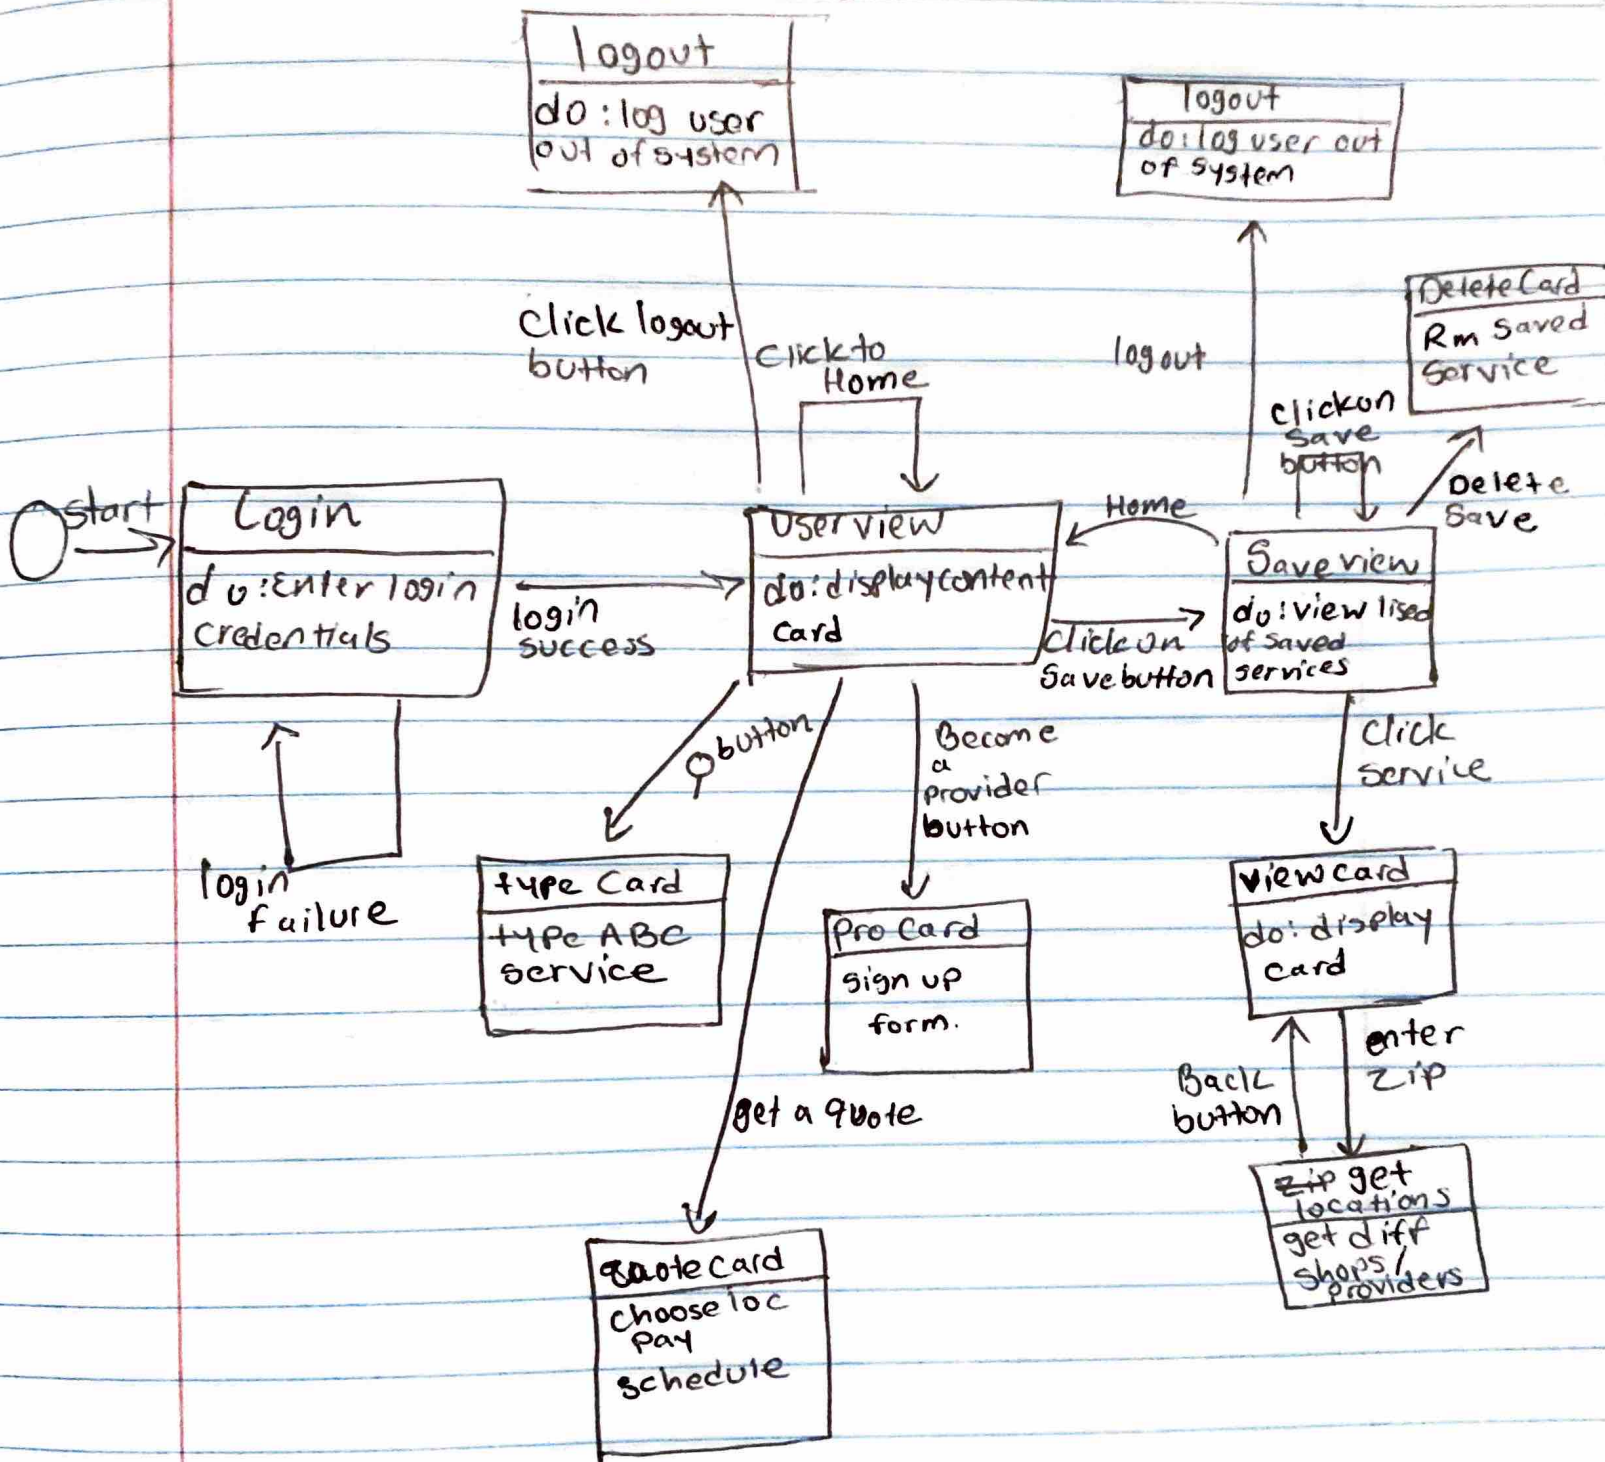 logout
do : log user
out of system
logout
do : log user out
of system
Delete Card
Rm saved
service
Click logout
button
Click to
Home
logout
Click on
save
button
Delete
save
start
Login
do : Enter login
credentials
login
success
User view
do : display content
card
Home
Click on
Save button
Save view
do : view lised
of saved
services
login
failure
button
Become
a
provider
button
Click
service
type Card
type ABC
service
Pro Card
sign up
form.
view card
do : display
card
get a quote
Back
button
enter
zip
zip get
locations
get diff
shops/
providers
quote card
choose loc
pay
schedule